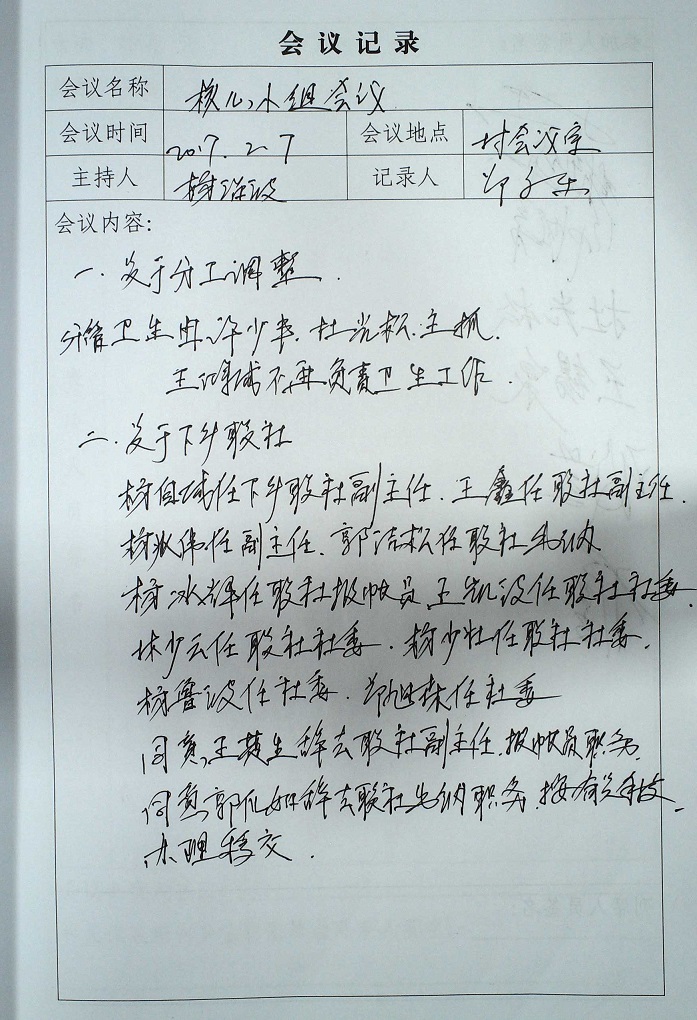 会议记录
会议名称 核心小组会议
会议时间 2017.2.7 会议地点 村会议室
主持人 记录人
会议内容:
一、关于分工调整.
分管卫生由许少丰、杜光松主抓.
王海城不再负责卫生工作.
二、关于下乡联社
任下乡联社副主任.王鑫任联社副主任.
杨耿伟任副主任、郭洁松任联社出纳
杨冰辉任联社报帐员 王凯波任联社社委.
林少云任联社社委.杨少壮任联社社委.
杨鲁波任社委.郑旭林任社委
同意王黄生辞去联社副主任.报帐员职务.
同意郭 如辞去联社出纳职务.按有关手
办理移交.